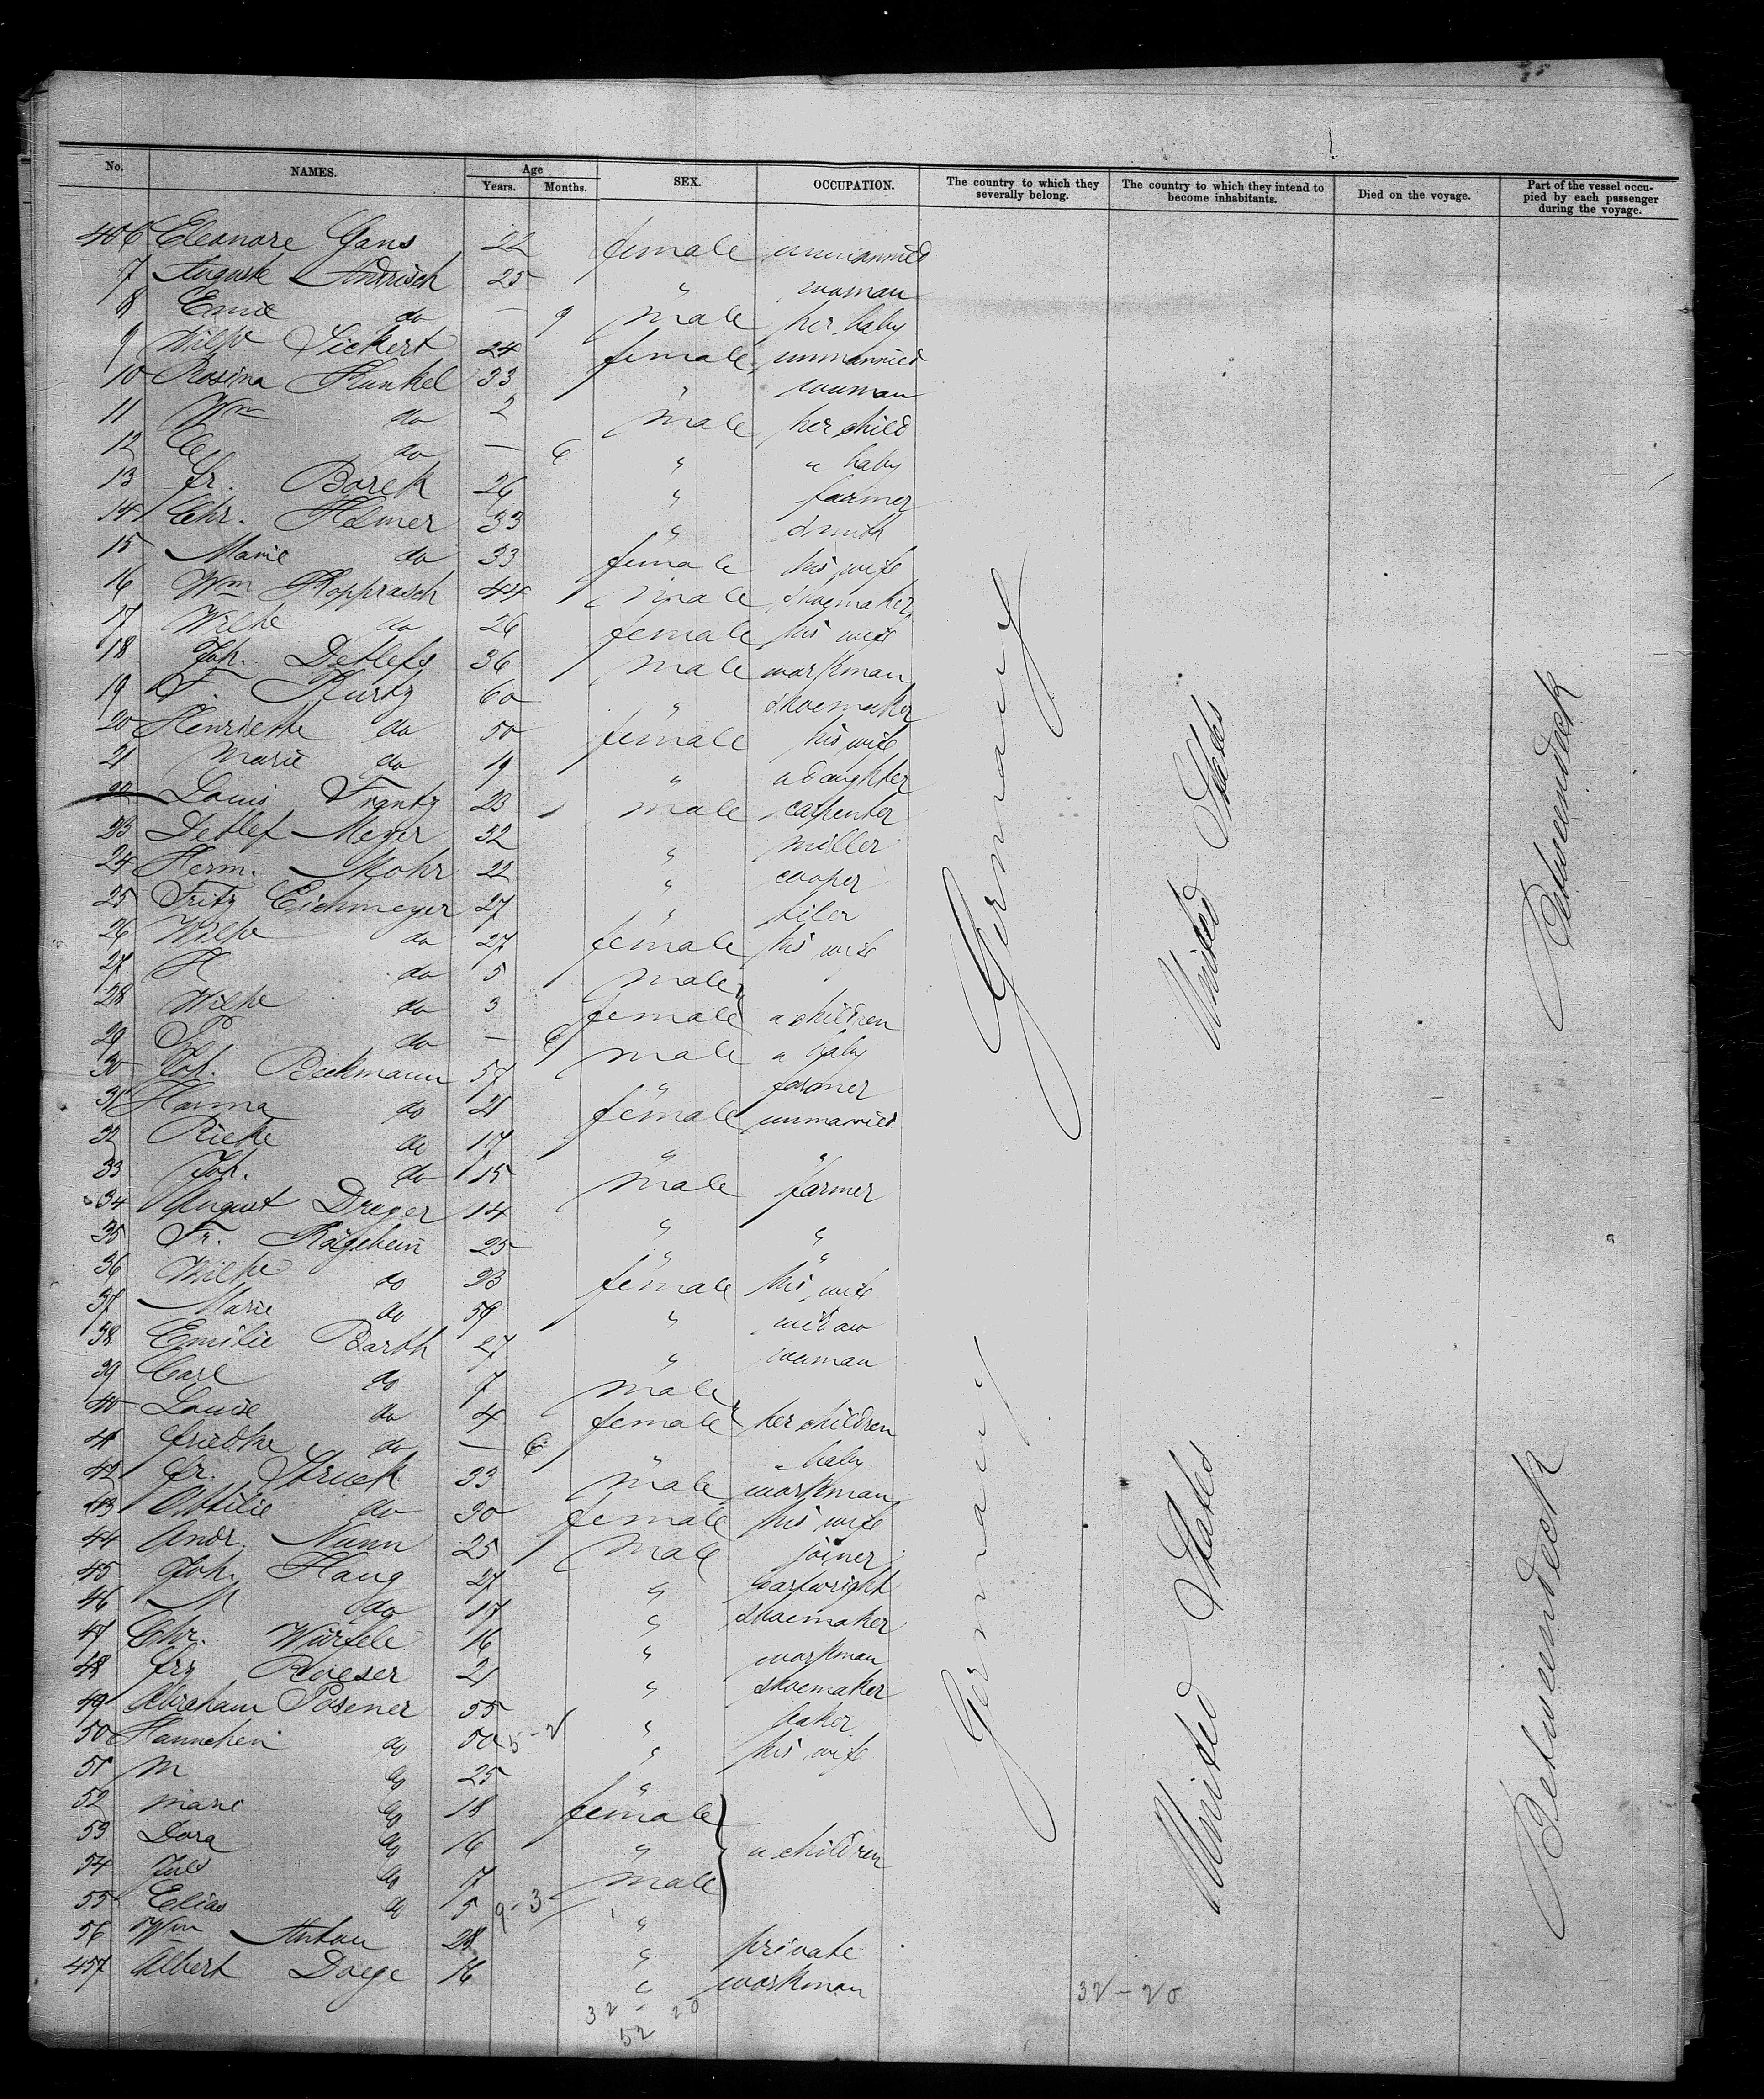 No. NAMES. Age Years. Months. SEX. OCCUPATION. The country to which they severally belong. The country to which they intend to become inhabitants. Died on the voyage. Part of the vessel occupied by each passenger during the voyage.
406 Eleonore Gans 22 female unmarried
7 Auguste Andrisch 25 " woman
8 Emil do — 9 male her baby
9 Wilhe Sickert 24 female unmarried
10 Rosina Kunkel 33 " woman
11 Wm do 2 male her child
12 do — 6 " " baby
13 Fr. Borek 26 " farmer
14 Chr. Helmer 33 " smith
15 Marie do 33 female his wife
16 Wm Kopprasch 44 male shoemaker
17 Wilhe do 26 female his wife
18 Joh. Detlefs 36 male workman
19 F. Kurtz 60 " shoemaker
20 Henriette do 50 female his wife
21 Marie do 19 " " daughter
22 Louis Frantz 23 male carpenter
23 Detlef Meyer 32 " miller
24 Herm. Mohr 22 " cooper
25 Fritz Eichmeyer 27 " tiler
26 Wilhe do 27 female his wife
27 H do 5 male
28 Wilhe do 3 female " children
29 do — 6 male " baby
30 Joh. Beckmann 57 " farmer
31 Hanna do 21 female unmarried
32 Rieke do 17 " "
33 Joh. do 15 male farmer
34 August Dreyer 14 " "
35 Fr. Rögehein 25 " "
36 Wilhe do 23 female his wife
37 Marie do 59 " widow
38 Emilie Barth 27 " woman
39 Carl do 7 male
40 Louise do 4 female her children
41 Friedke do — 6 " baby
42 Fr. Struck 33 male workman
43 Ottilie do 30 female his wife
44 Andr. Nunn 25 male joiner
45 Joh. Haug 27 " Cartwright
46 M do 17 " shoemaker
47 Chr. Würfele 16 " workman
48 Frz Roeser 21 " shoemaker
49 Abraham Posener 55 " baker
50 Hannchen do 50 5-2 " his wife
51 M do 25 "
52 Marie do 18 female
53 Dora do 16 " " children
54 Juls do 7 male
55 Elias do 5 9-3 "
56 Wm Anton 28 " private
457 Albert Doege 16 " workman
32 - 20
52
32-20
Germany
United States
Betweendeck
Germany
United States
Betweendeck